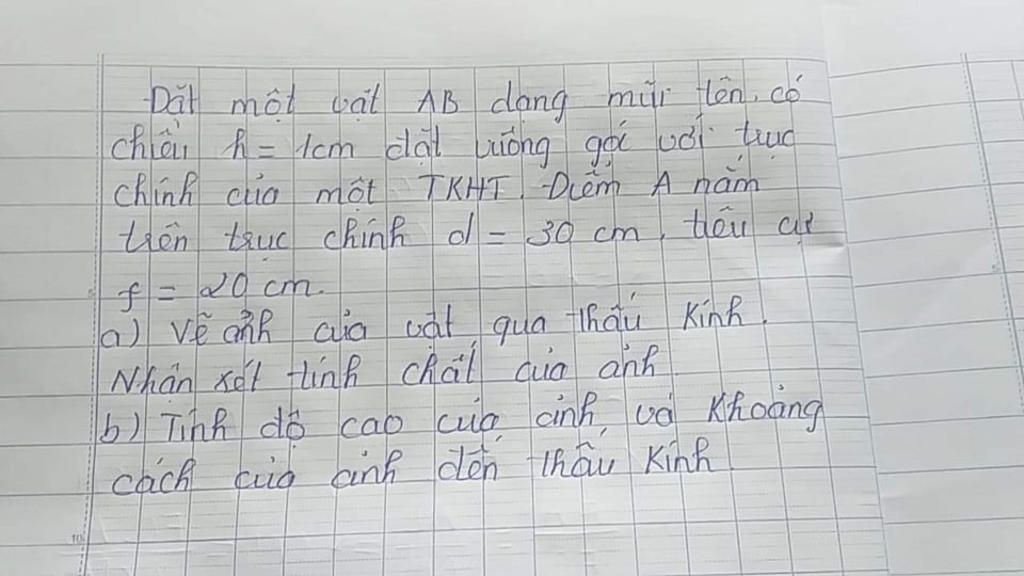 Đặt một vật AB dạng mũi tên, có
chiều h = 1cm đặt vuông góc với trục
chính của một TKHT. Điểm A nằm
trên trục chính d = 30 cm, tiêu cự
f = 20 cm.
a) Vẽ ảnh của vật qua thấu kính.
Nhận xét tính chất của ảnh
b) Tính độ cao của ảnh và khoảng
cách của ảnh đến thấu kính